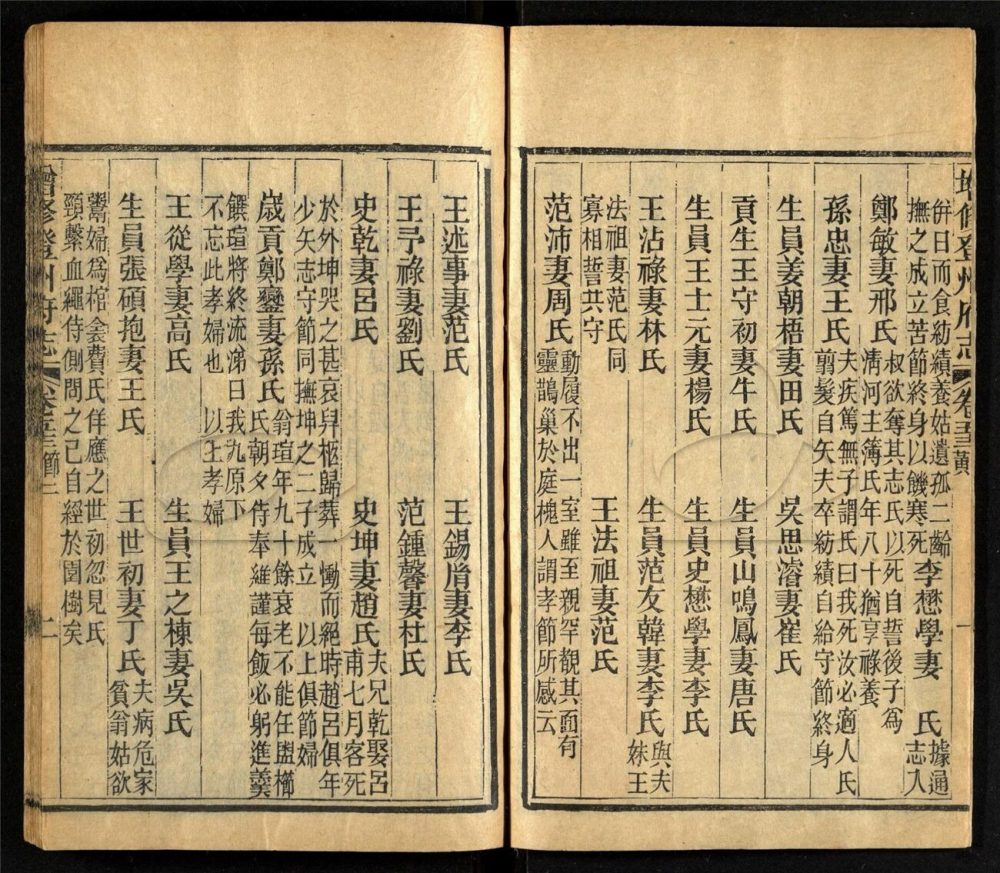 增修登州府志 卷五十三 黃
併日而食紡績養姑遺孤二齡
撫之成立苦節終身以饑寒死
李懋學妻 氏
據通
志入
鄭敏妻邢氏
叔欲奪其志氏以死自誓後子爲
淸河主簿氏年八十猶享祿養
孫忠妻王氏
夫疾篤無子謂氏曰我死汝必適人氏
翦髮自矢夫卒紡績自給守節終身
生員姜朝梧妻田氏
吳思濬妻崔氏
貢生王守初妻牛氏
生員山鳴鳳妻唐氏
生員王士元妻楊氏
生員史懋學妻李氏
王沾祿妻林氏
生員范友韓妻李氏
與夫
妹王
法祖妻范氏同
寡相誓共守
王法祖妻范氏
范沛妻周氏
動履不出一室雖至親罕覩其面有
靈鵲巢於庭槐人謂孝節所感云
王述事妻范氏
王錫胤妻李氏
王予祿妻劉氏
范鍾馨妻杜氏
史乾妻呂氏
史坤妻趙氏
夫兄乾娶呂
甫七月客死
於外坤哭之甚哀舁柩歸葬一慟而絕時趙呂俱年
少矢志守節同撫坤之二子成立 以上俱節婦
歲貢鄭鑾妻孫氏
翁瑄年九十餘衰老不能任盥櫛
氏朝夕侍奉維謹每飯必躬進羹
饌瑄將終流涕曰我九原下
不忘此孝婦也 以上孝婦
王從學妻高氏
生員王之棟妻吳氏
生員張碩抱妻王氏
王世初妻丁氏
夫病危家
貧翁姑欲
鬻婦爲棺衾費氏佯應之世初忽見氏
頸繫血繩侍側問之己自經於園樹矣
增修登州府志 卷五十三 節 二